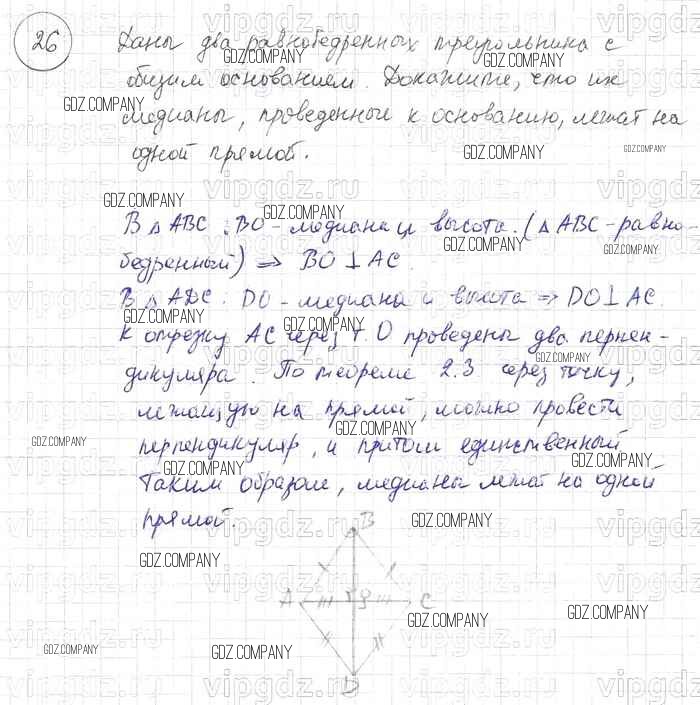 26 Даны два равнобедренных треугольника с
общим основанием. Докажите, что их
медианы, проведенные к основанию, лежат на
одной прямой.
В △ ABC : BO - медиана и высота. (△ ABC - равно-
бедренный) ⇒ BO ⊥ AC.
В △ ADC : DO - медиана и высота ⇒ DO ⊥ AC.
К отрезку AC через т. O проведены два перпен-
дикуляра. По теореме 2.3 через точку,
лежащую на прямой, можно провести
перпендикуляр, и притом единственный
Таким образом, медианы лежат на одной
прямой.
B
A
C
D
GDZ.COMPANY
vipgdz.ru